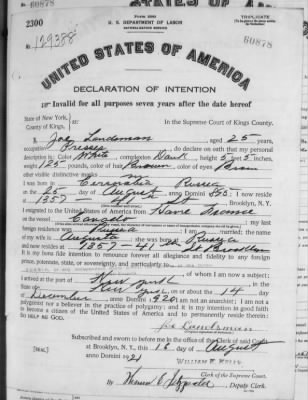 60878
2300
Form 2203
U. S. DEPARTMENT OF LABOR
NATURALIZATION SERVICE
TRIPLICATE
No. 129388
60878
UNITED STATES OF AMERICA
DECLARATION OF INTENTION
Invalid for all purposes seven years after the date hereof
State of New York,
County of Kings, ss:
In the Supreme Court of Kings County.
I, Joe Landsman, aged 25 years,
occupation Presser, do declare on oath that my personal
description is: Color White, complexion Dark, height 5 feet 5 inches,
weight 125 pounds, color of hair Brown, color of eyes Brown
other visible distinctive marks
I was born in Russia
on the 25 day of August, anno Domini 1895; I now reside
at 1357 - 41 St
Brooklyn, N. Y.
I emigrated to the United States of America from Havre France
on the vessel; my last
foreign residence was Russia; I am married; the name
of my wife is Augusta; she was born at Russia
and now resides at 1357 41 St Brooklyn
It is my bona fide intention to renounce forever all allegiance and fidelity to any foreign
prince, potentate, state, or sovereignty, and particularly to
of whom I am now a subject;
I arrived at the port of New York, in the
State of New York, on or about the 14 day
of December, anno Domini 1920; I am not an anarchist; I am not a
polygamist nor a believer in the practice of polygamy; and it is my intention in good faith
to become a citizen of the United States of America and to permanently reside therein:
SO HELP ME GOD.
Joe Landsman
Subscribed and sworn to before me in the office of the Clerk of said Court
at Brooklyn, N. Y., this 16 day of August
anno Domini 1921
[SEAL]
WILLIAM E. KELLY
Clerk of the Supreme Court.
By
Deputy Clerk.